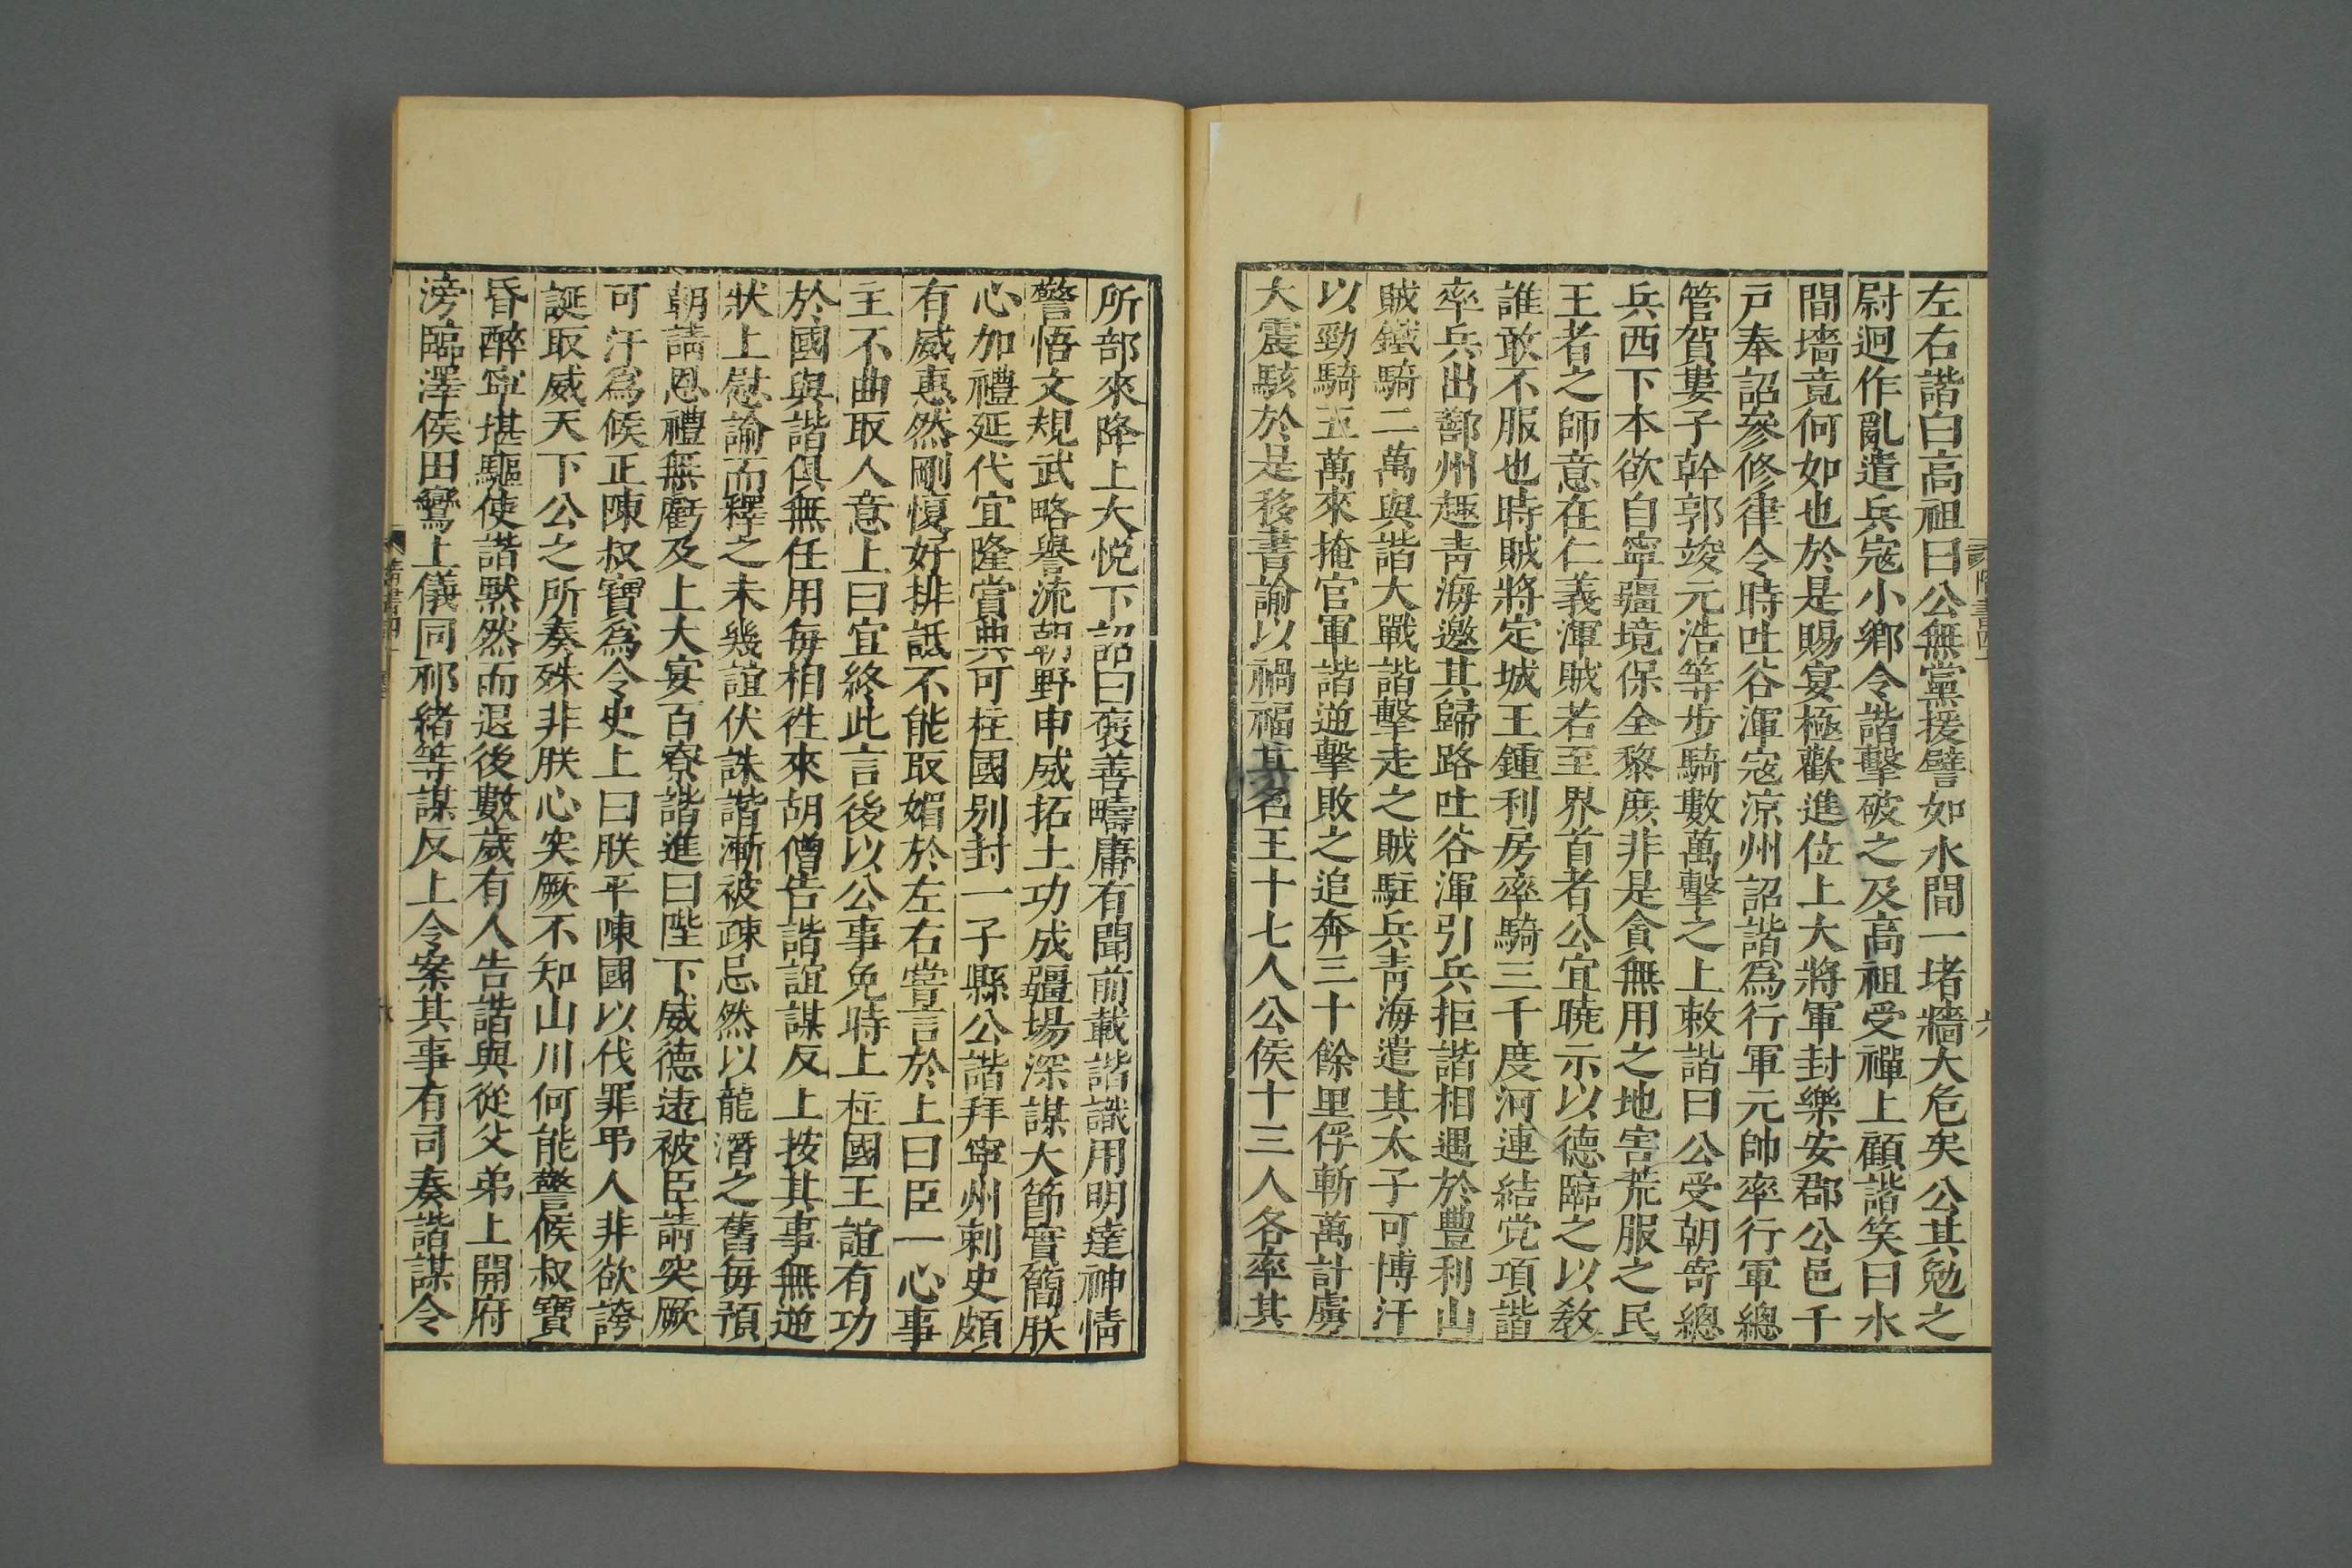 左右諧白高祖曰公無黨援譬如水間一堵牆大危矣公其勉之
尉迥作亂遣兵寇小鄉令諧擊破之及高祖受禪上顧諧笑曰水
間墻竟何如也於是賜宴極歡進位上大將軍封樂安郡公邑千
戸奉詔參修律令時吐谷渾寇涼州詔諧爲行軍元帥率行軍總
管賀婁子幹郭竣元浩等步騎數萬擊之上敕諧曰公受朝寄總
兵西下本欲自寧疆境保全黎庶非是貪無用之地害荒服之民
王者之師意在仁義渾賊若至界首者公宜曉示以德臨之以敎
誰敢不服也時賊將定城王鍾利房率騎三千度河連結党項諧
率兵出鄯州趣青海邀其歸路吐谷渾引兵拒諧相遇於豐利山
賊鐵騎二萬與諧大戰諧擊走之賊駐兵青海遣其太子可博汗
以勁騎五萬來掩官軍諧逆擊敗之追奔三十餘里俘斬萬計虜
大震駭於是移書諭以禍福其名王十七人公侯十三人各率其
所部來降上大悅下詔曰褒善疇庸有聞前載諧識用明達神情
警悟文規武略譽流朝野申威拓土功成疆場深謀大節實簡朕
心加禮延代宜隆賞典可柱國別封一子縣公諧拜寧州刺史頗
有威惠然剛愎好排詆不能取媚於左右嘗言於上曰臣一心事
主不曲取人意上曰宜終此言後以公事免時上柱國王誼有功
於國與諧俱無任用每相往來胡僧告諧誼謀反上按其事無逆
狀上慰諭而釋之未幾誼伏誅諧漸被疎忌然以龍潛之舊每預
朝請恩禮無虧及上大宴百寮諧進曰陛下威德遠被臣請突厥
可汗爲候正陳叔寶爲令史上曰朕平陳國以伐罪弔人非欲誇
誕取威天下公之所奏殊非朕心突厥不知山川何能警候叔寶
昏醉寧堪驅使諧默然而退後數歲有人告諧與從父弟上開府
滂臨澤侯田鸞上儀同祁緒等謀反上令案其事有司奏諧謀令